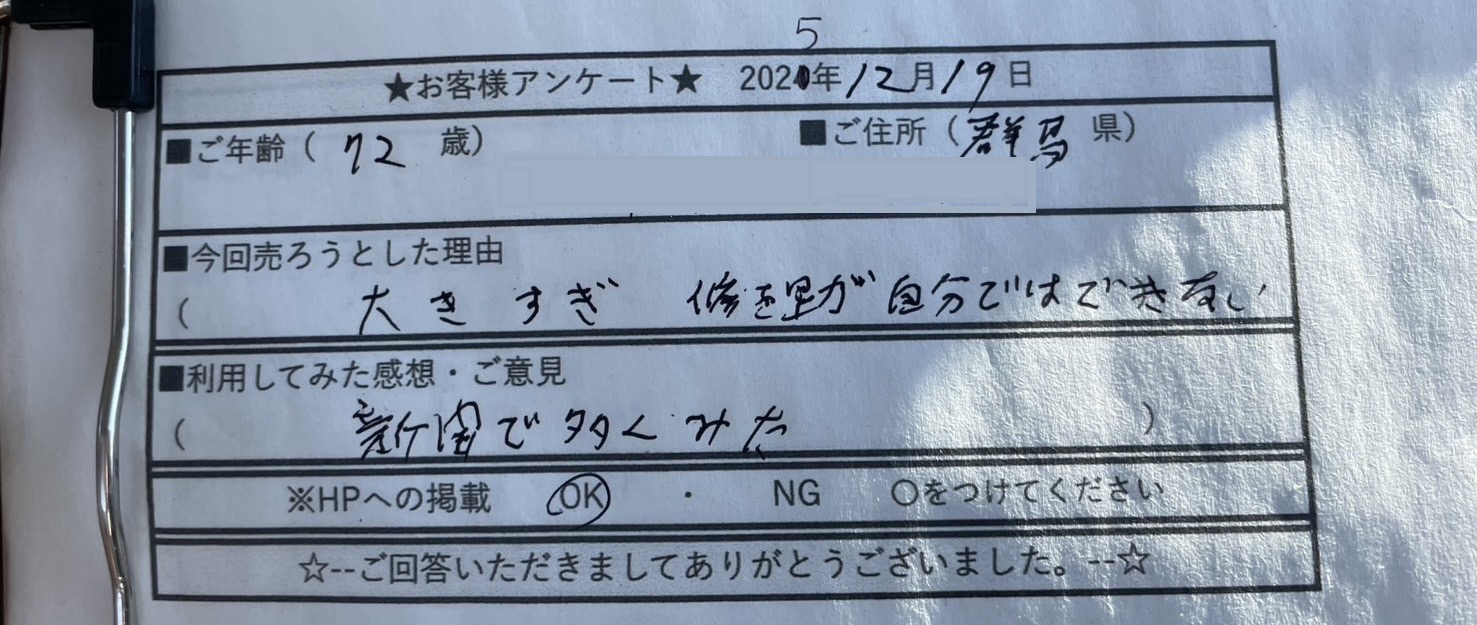 5
★お客様アンケート★ 2020年12月19日
■ご年齢（ 72 歳） ■ご住所（群馬 県）
■今回売ろうとした理由
（ 大きすぎ 修理が自分ではできない
■利用してみた感想・ご意見
（ 新聞で多くみた ）
※HPへの掲載 OK ・ NG 〇をつけてください
☆--ご回答いただきましてありがとうございました。--☆